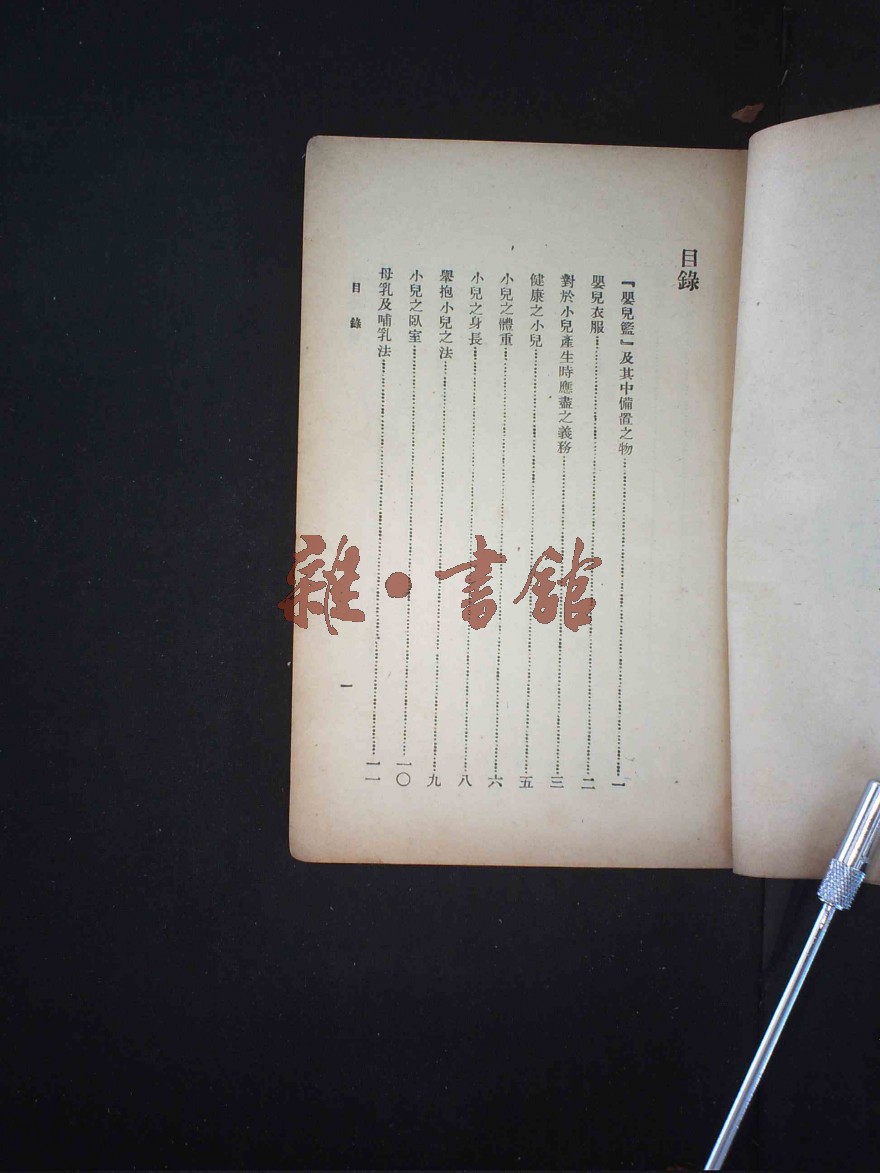 目錄
『嬰兒籃』及其中備置之物……一
嬰兒衣服……二
對於小兒產生時應盡之義務……三
健康之小兒……五
小兒之體重……六
小兒之身長……八
舉抱小兒之法……九
小兒之臥室……一〇
母乳及哺乳法……一一
目錄
一
雜·書館